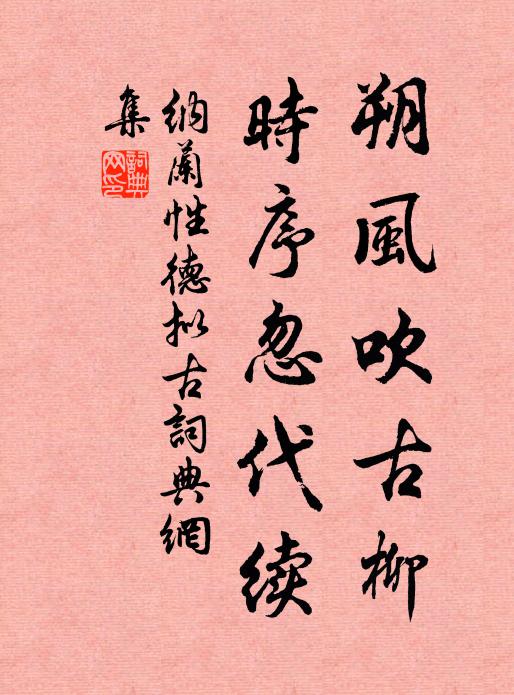 朔風吹古柳
時序忽代续
納蘭性德拟古詞典網
集
詞典網印